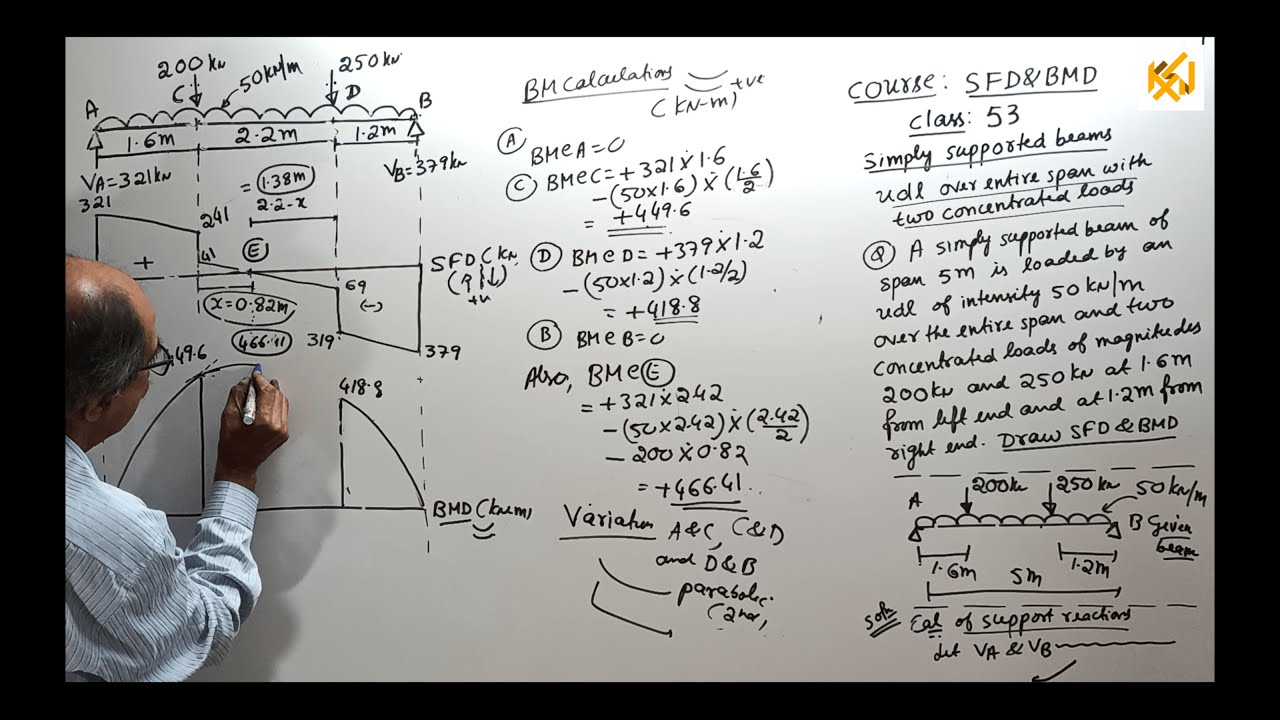 200kn
250kn
50kN/m
C
D
A
B
1.6m
2.2m
1.2m
VA=321kN
VB=379kN
= 1.38m
2.2-x
321
241
41
E
+
SFD (kN
+v
x=0.82m
69
(-)
319
379
466.41
49.6
418.8
BMD (kn-m)
BM Calculations
(kN-m) +ve
A BM@A=0
C BM@C=+321×1.6
-(50×1.6)×(1.6/2)
= +449.6
D BM@D=+379×1.2
-(50×1.2)×(1.2/2)
= +418.8
B BM@B=0
Also, BM@E
=+321×2.42
-(50×2.42)×(2.42/2)
-200×0.82
=+466.41
Variation A&C, C&D
and D&B
parabolic
(2nd,
COURSE: SFD&BMD
Class: 53
Simply supported beams
udl over entire span with
two concentrated loads
Q A simply supported beam of
span 5m is loaded by an
udl of intensity 50kN/m
over the entire span and two
concentrated loads of magnitudes
200kN and 250kN at 1.6m
from left end and at 1.2m from
right end. Draw SFD&BMD
200kn
250kN
50kN/m
A
B Given
beam
1.6m
5m
1.2m
Soln Cal of support reactions
Let VA & VB